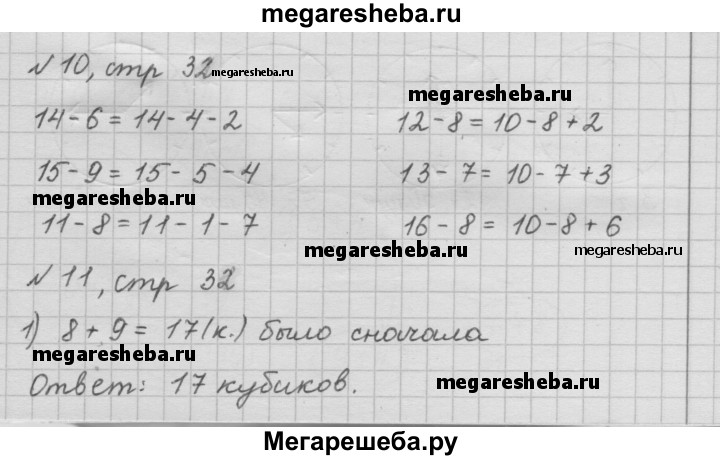 megaresheba.ru
№ 10, стр 32 megaresheba.ru
megaresheba.ru
14 - 6 = 14 - 4 - 2
12 - 8 = 10 - 8 + 2
15 - 9 = 15 - 5 - 4
13 - 7 = 10 - 7 + 3
megaresheba.ru
11 - 8 = 11 - 1 - 7
16 - 8 = 10 - 8 + 6
megaresheba.ru
megaresheba.ru
№ 11, стр 32
1) 8 + 9 = 17 (к.) было сначала
megaresheba.ru
Ответ: 17 кубиков.
megaresheba.ru
Мегарешеба.ру